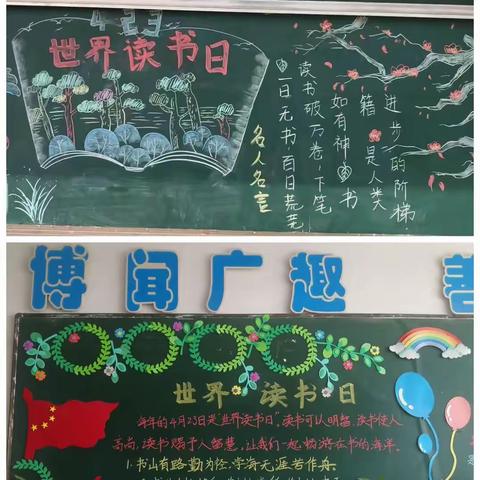 4.23
世界读书日
书籍是人类
进步的阶梯
读书破万卷,下笔
如有神
一日无书,百日荒芜
名人名言
博闻广趣 善
世界读书日
每年的4月23日是"世界读书日",读书可以明智,读书使人
高尚,读书赐予人智慧,让我们一起畅游在书的海洋。
1.书山有路勤为径,学海无涯苦作舟。